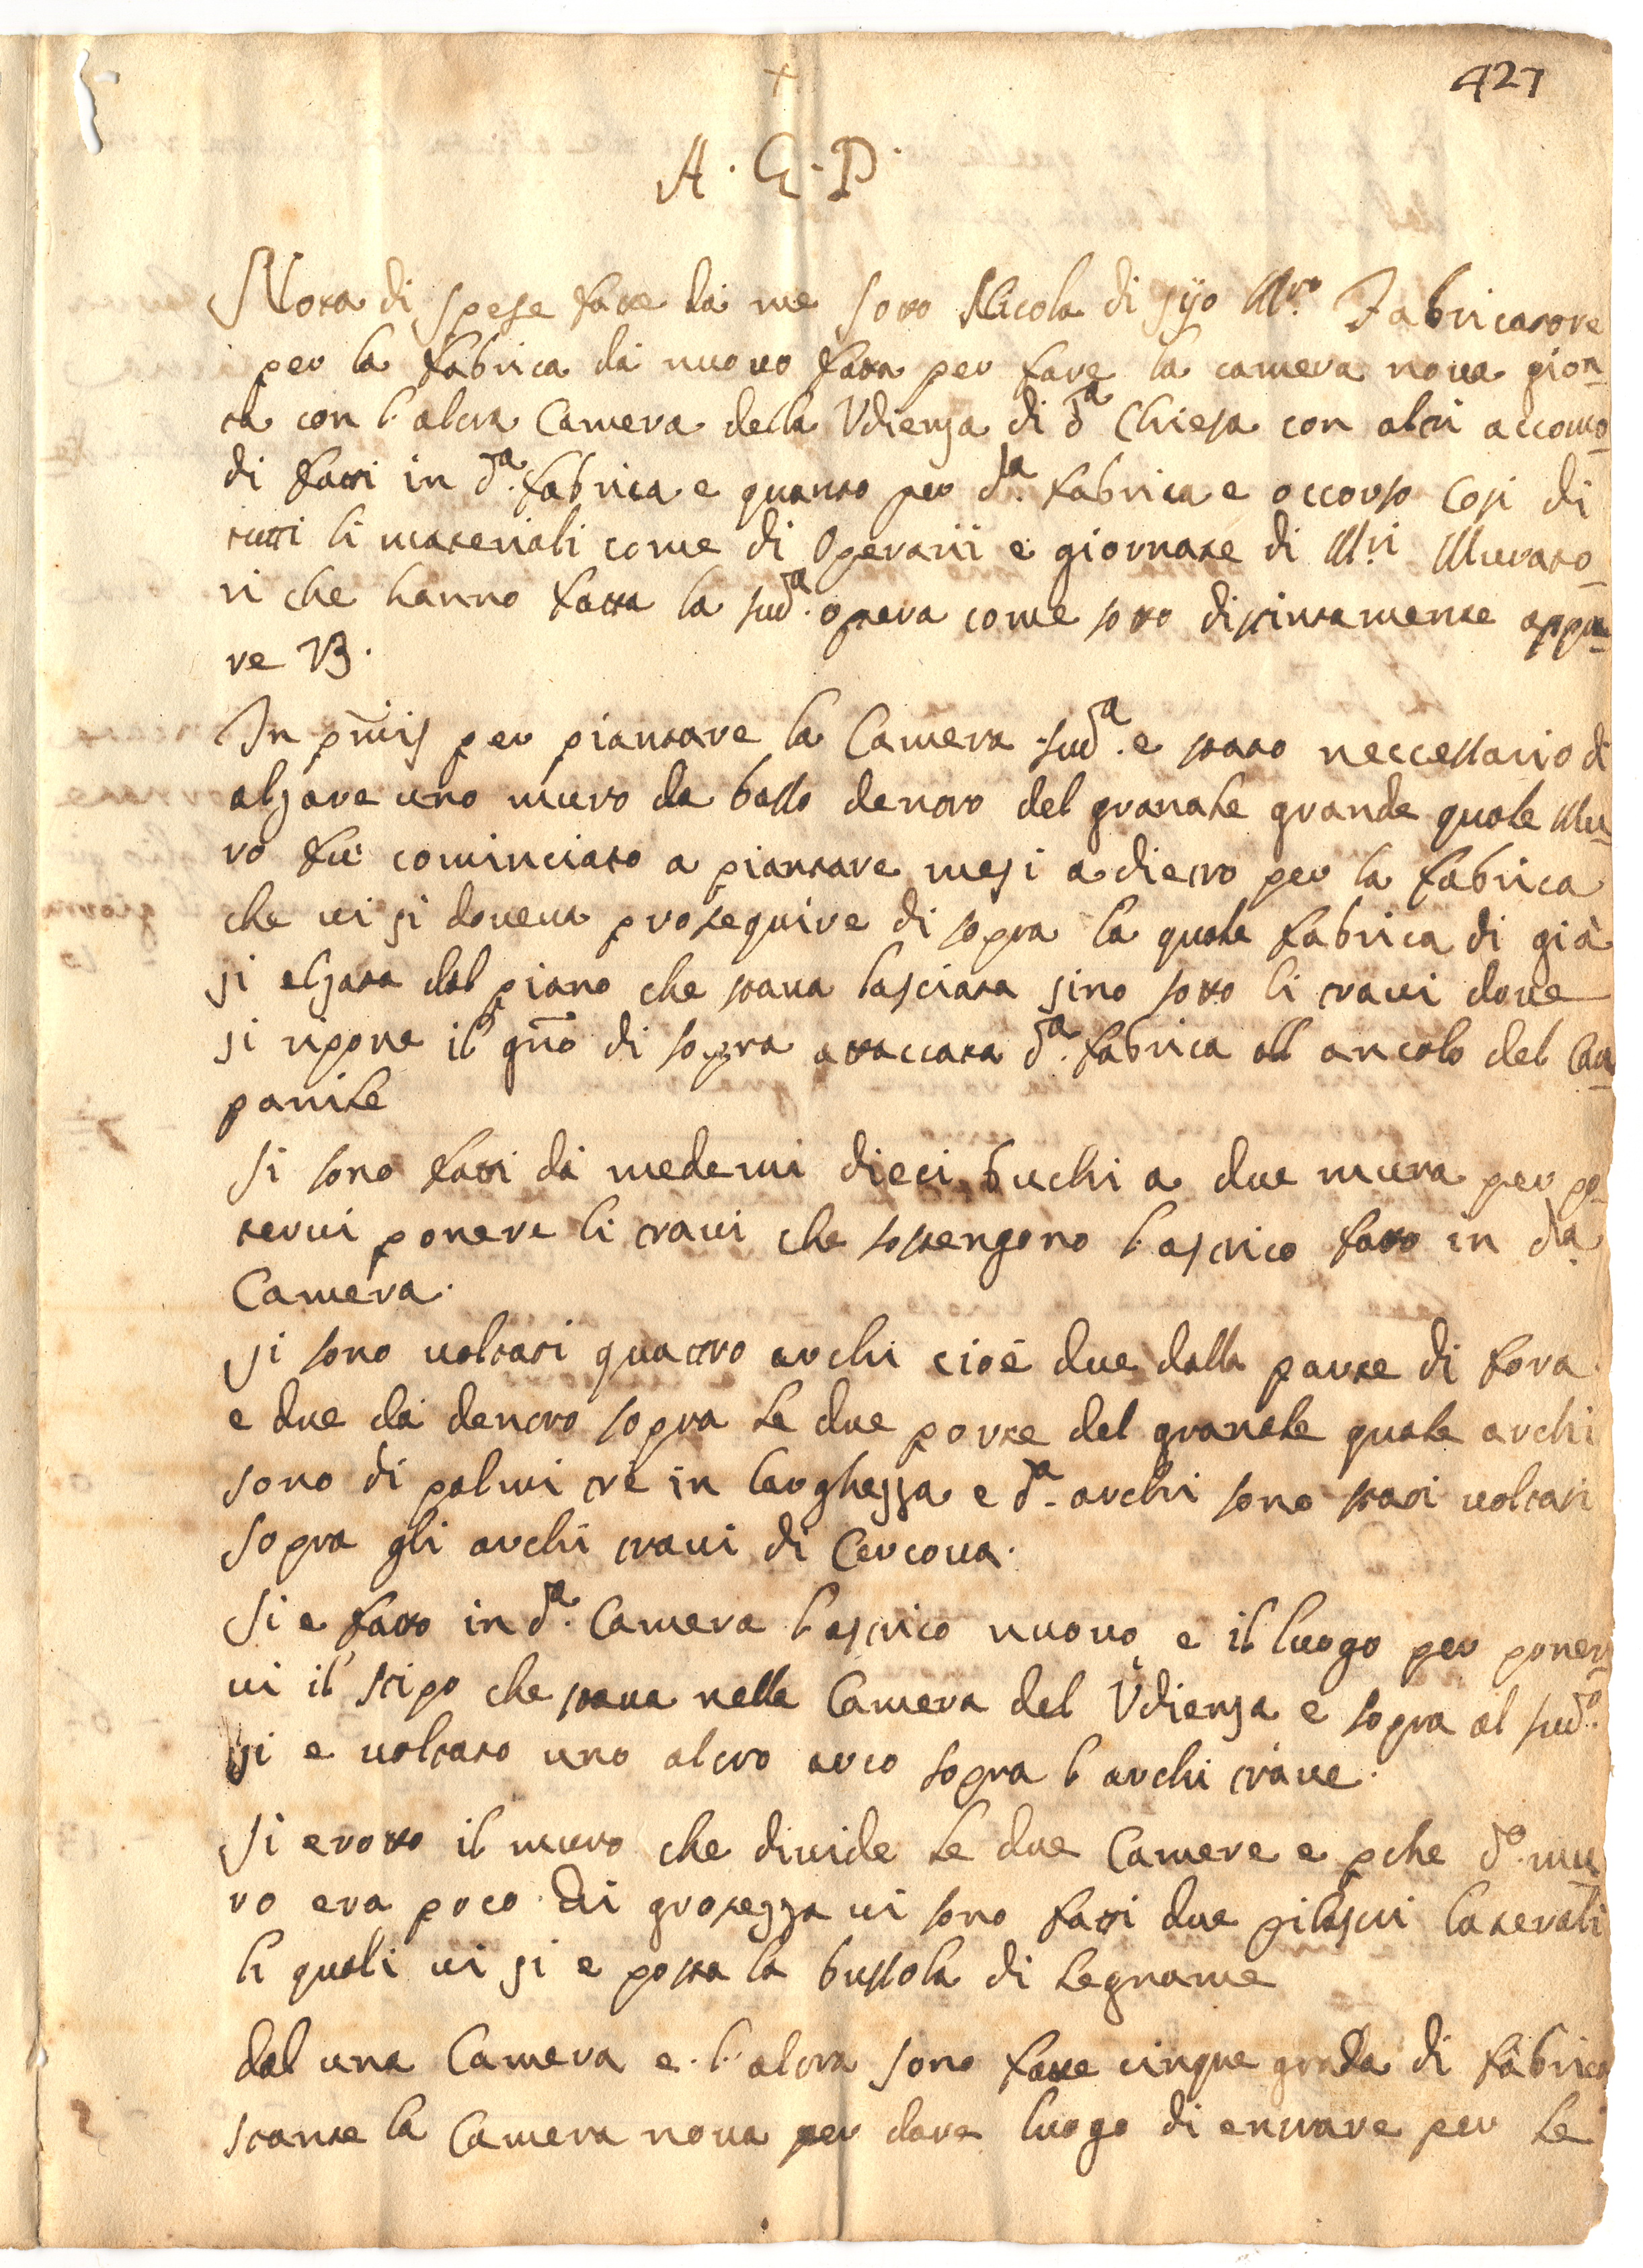 427
+
A. G. P.
Nota di spese fatte da me sotto Nicola di Zijo M.ro Fabricatore
per la fabrica da nuovo fatta per fare la camera nova gion-
ta con l'altra Camera della Vdienza di d.a Chiesa con altri accomo-
di fatti in d.a fabrica e quanto per d.a fabrica e occorso Cosi di
tutti li materiali come di Operarii e giornate di M.ri Murato-
ri che hanno fatta la sud.a opera come sotto distintamente appa-
re
In pmis per piantare la Camera sud.a e stato neccessario di
alzare uno muro da basso dentro del granale grande quale Mu-
ro fù cominciato a piantare mesi a dietro per la fabrica
che ui si doueua prosequire di sopra la quale fabrica di già
si elzata dal piano che staua lasciata sino sotto li traui doue
si ripone il gno di sopra attaccata d.a fabrica all ancolo del Cam-
panile
Si sono fatti da medemi dieci buchi a due mura per po-
terui ponere li traui che sostengono l'astrico fatto in d.a
Camera.
Si sono uoltati quattro archi cioè due dalla parte di fora
e due da dentro sopra le due porte del granale quale archi
sono di palmi tre in larghezza e d.a archi sono stati uoltati
sopra gli archi traui di Cercoua.
Si e fatto in d.a Camera l'astrico nuouo e il luogo per poner-
ui il stipo che staua nella Camera del Vdienza e sopra al sud.o
si e uoltato uno altro arco sopra l'archi traue.
Si e rotto il muro che diuide le due Camere e pche d.o mu-
ro era poco di grosezza ui sono fatti due pilastri laterali
li quali ui si e posta la bussola di legname
dal una Camera e l'altra sono fatte cinque grada di fabrica
stante la Camera noua per dare luogo di entrare per le